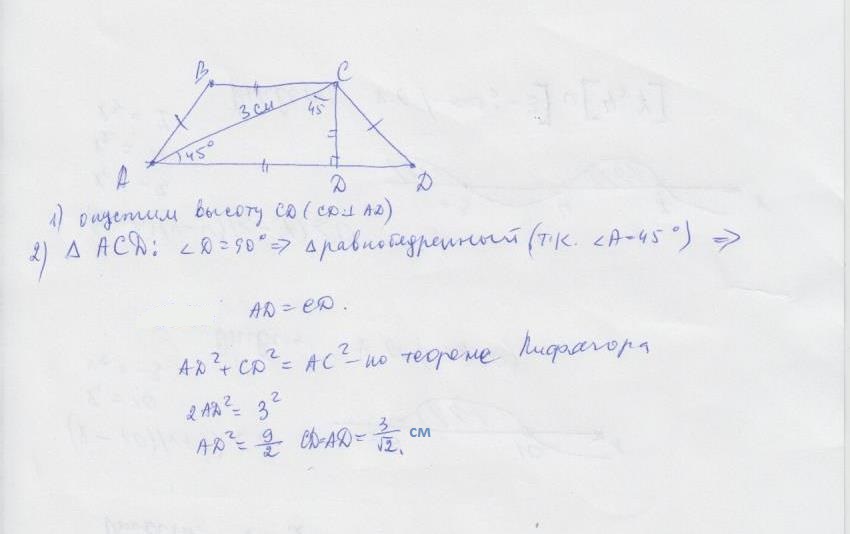 B C
3 см 45
45°
A D D
1) опустим высоту CD (CD⊥AD)
2) Δ ACD: ∠D=90° => Δ равнобедренный (т.к. ∠A=45°) =>
AD = CD.
AD²+CD²= AC² – по теореме Пифагора
2AD²= 3²
AD²= 9/2 CD=AD= 3/√2. см